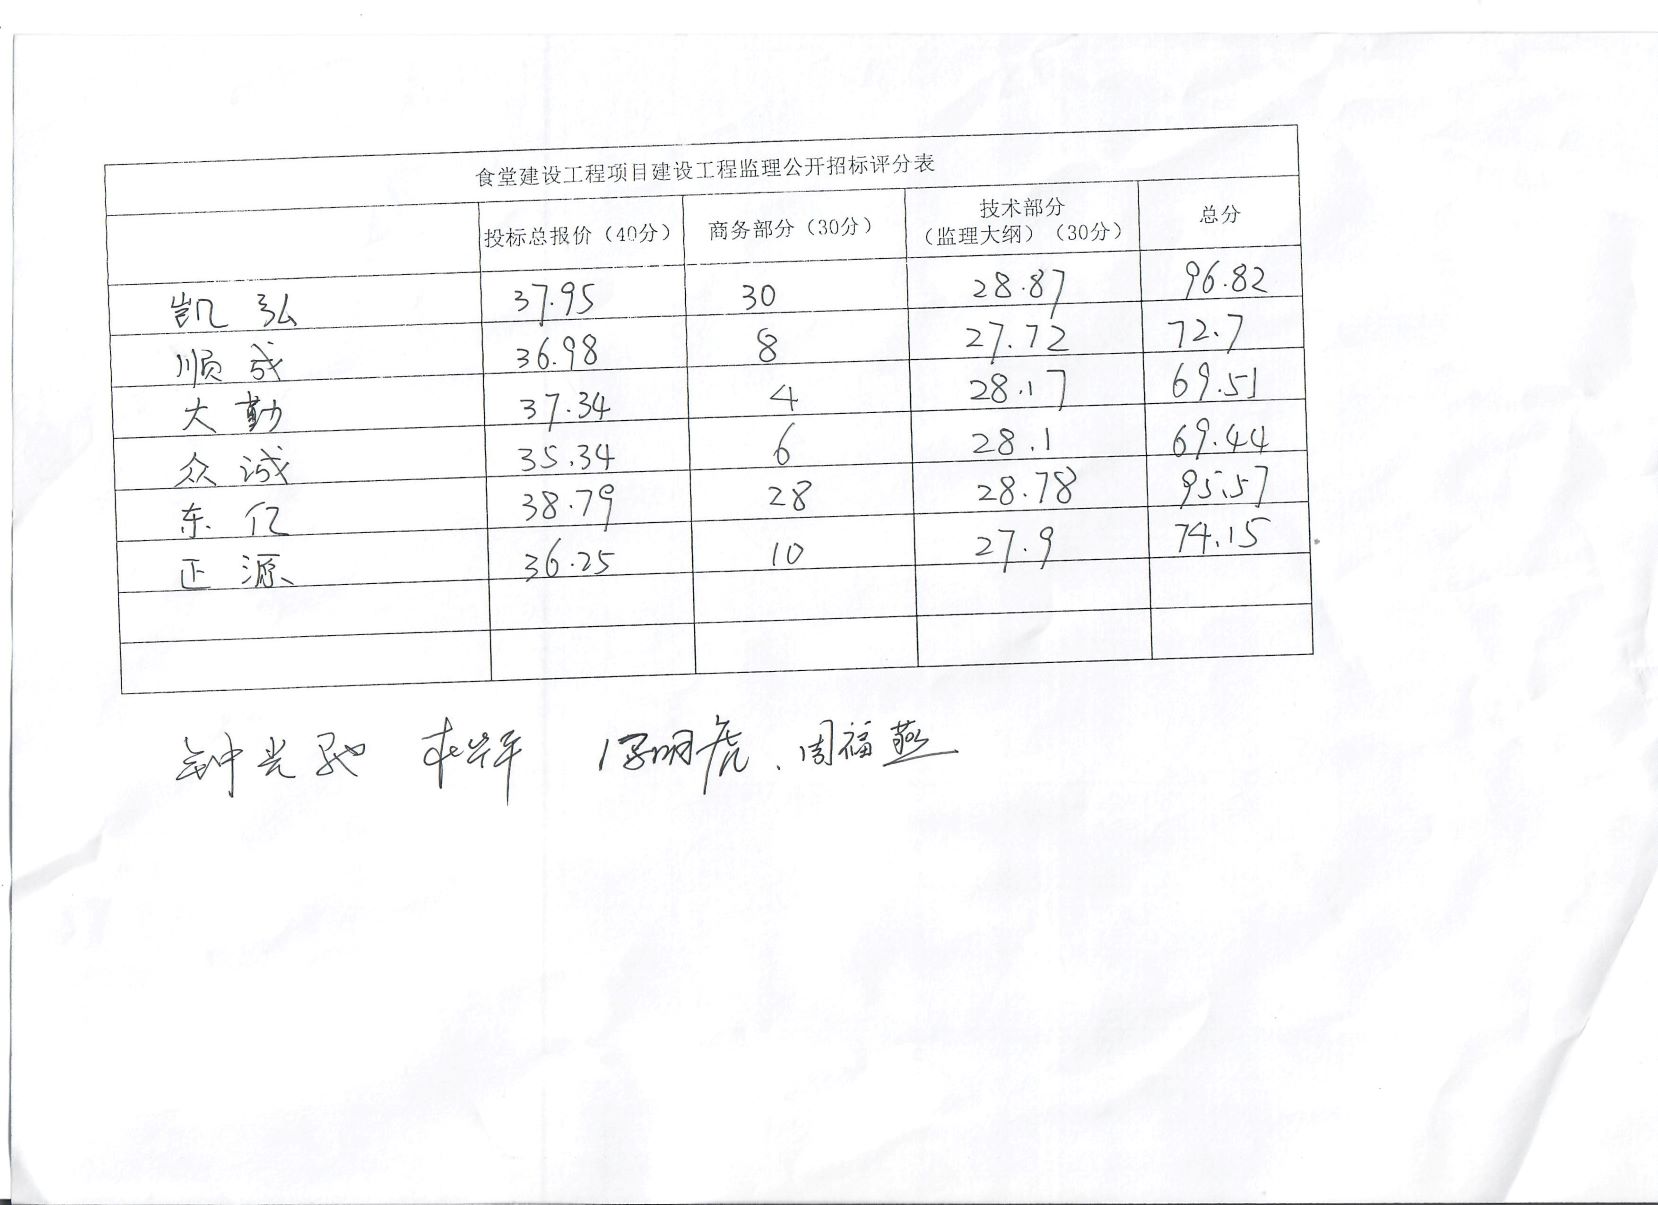 食堂建设工程项目建设工程监理公开招标评分表
投标总报价（40分） 商务部分（30分） 技术部分（监理大纲）（30分） 总分
凯弘 37.95 30 28.87 96.82
顺成 36.98 8 27.72 72.7
大勤 37.34 4 28.17 69.51
众诚 35.34 6 28.1 69.44
东亿 38.79 28 28.78 95.57
正源 36.25 10 27.9 74.15
钟光 明虎、周福燕